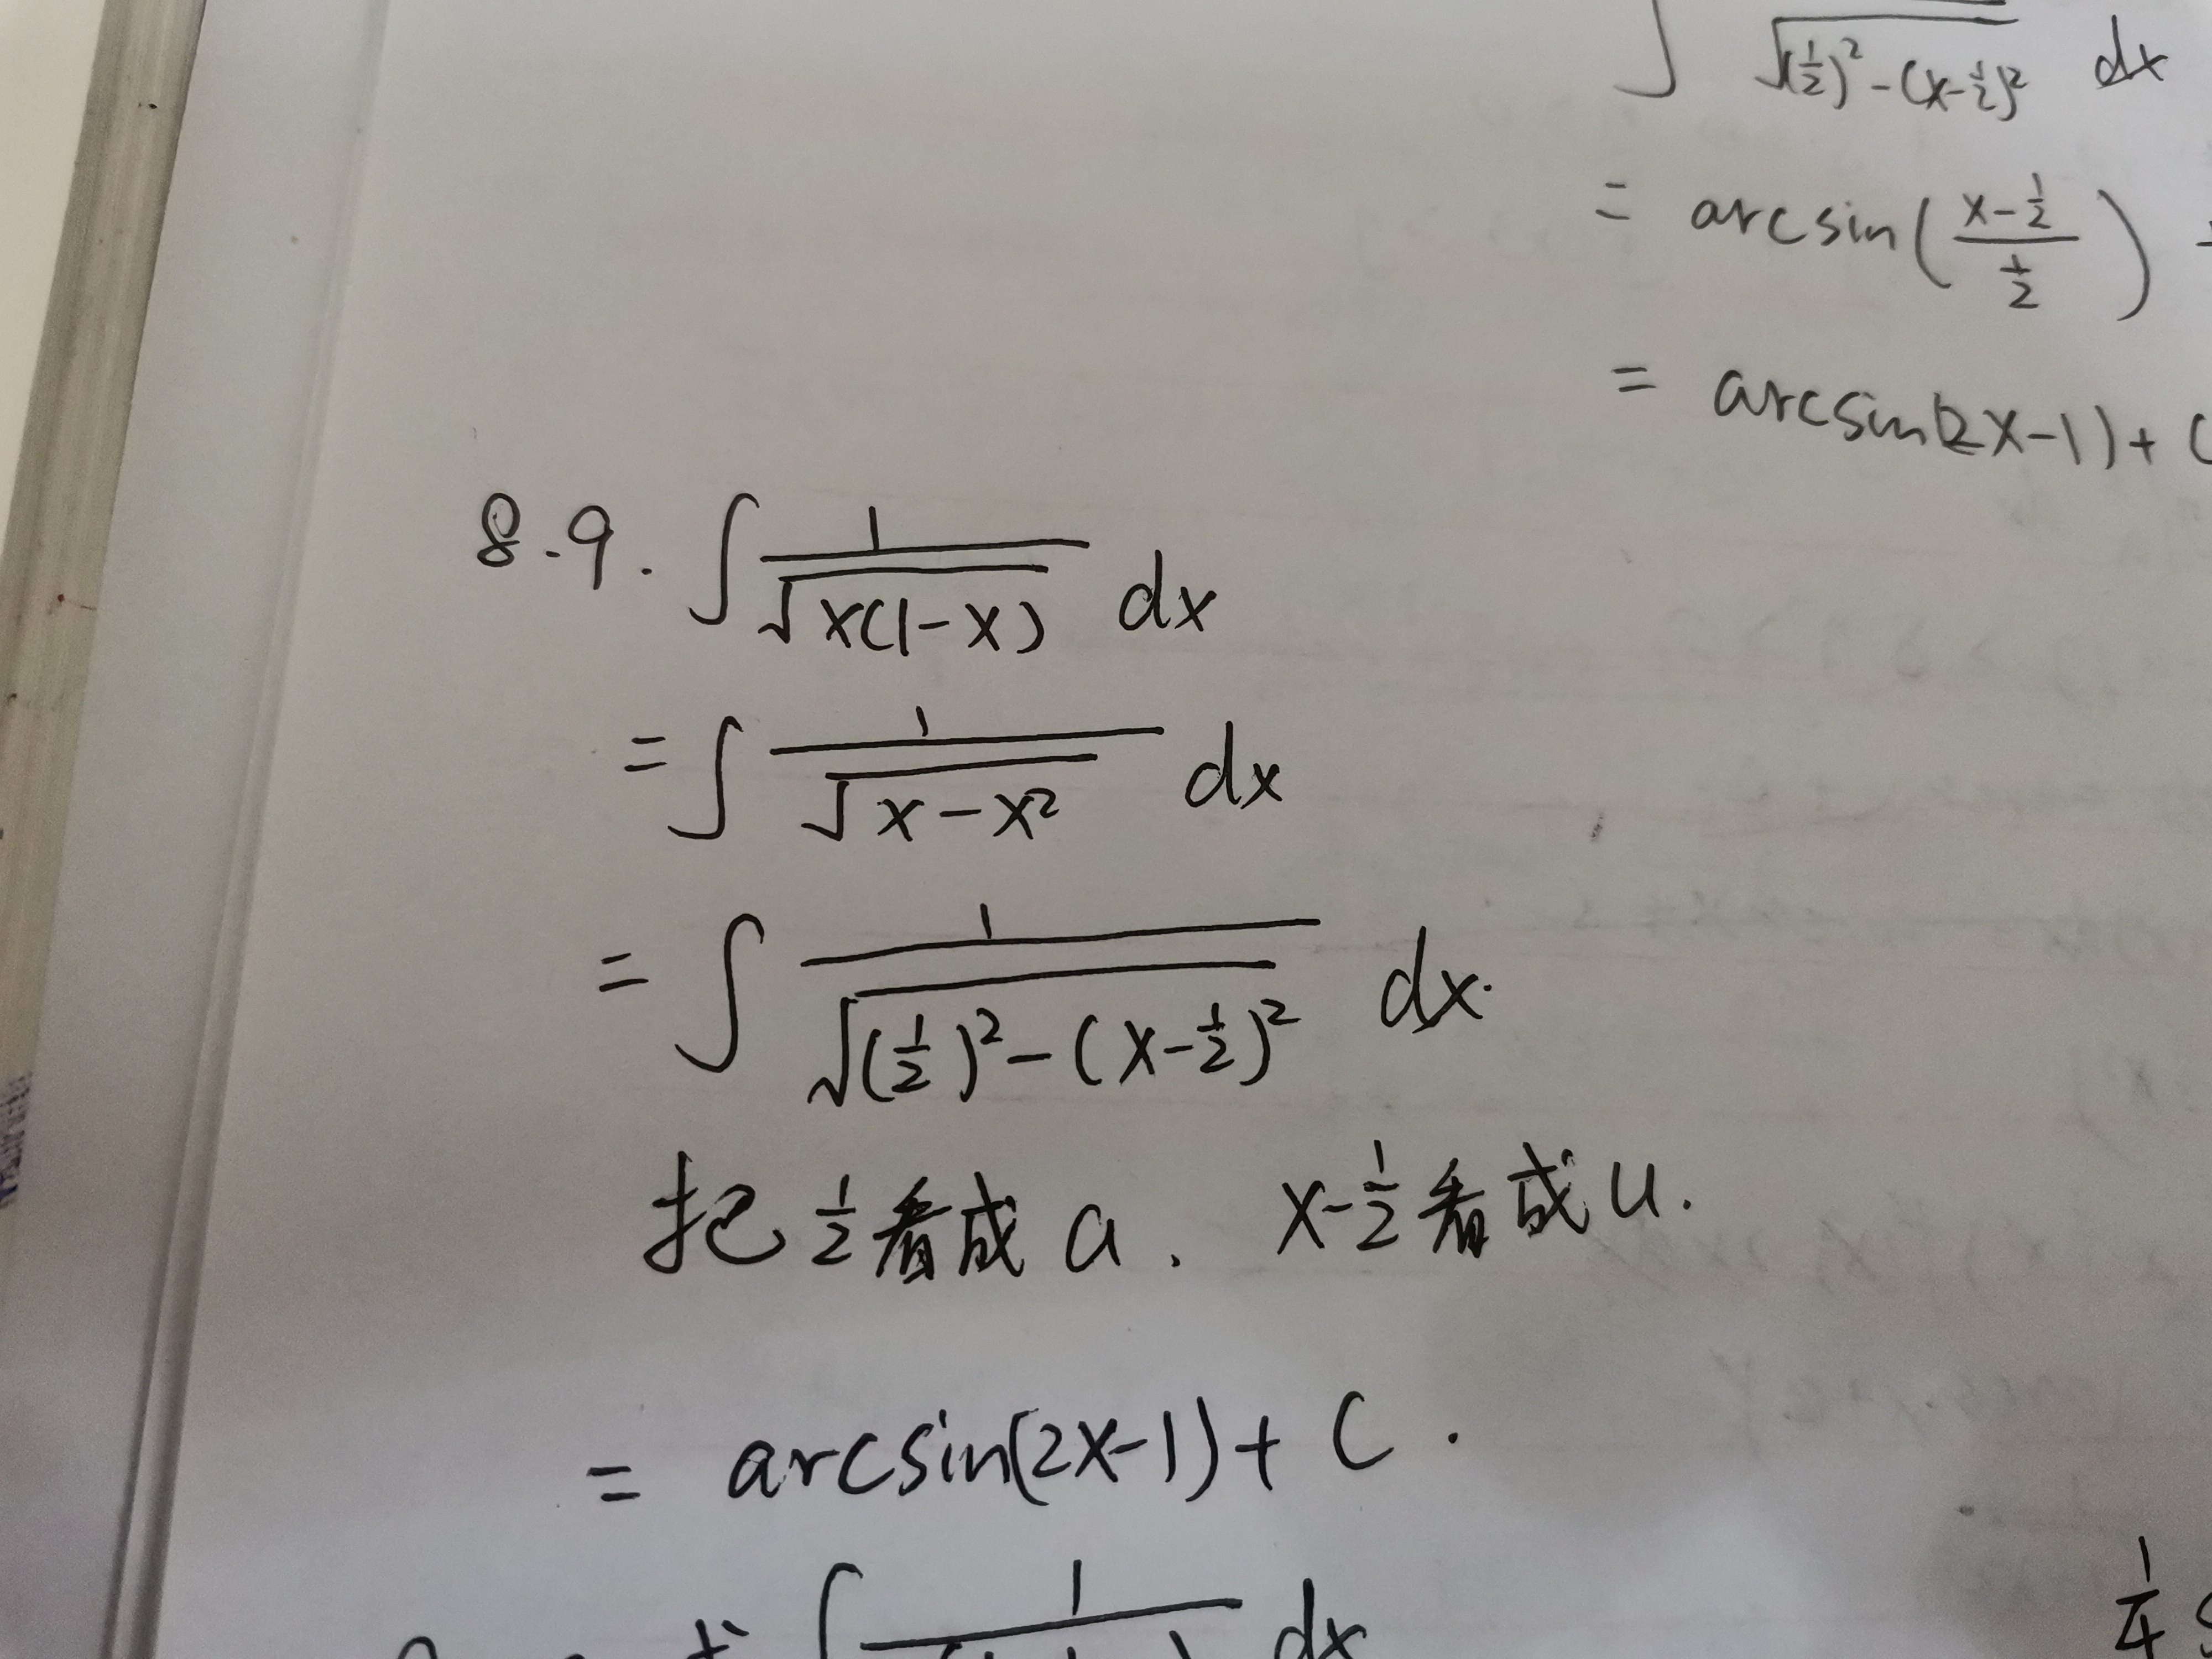 ∫ 1/√((1/2)² - (x-1/2)²) dx
= arcsin((x-1/2)/(1/2))
= arcsin(2x-1)+C
8.9. ∫ 1/√(x(1-x)) dx
= ∫ 1/√(x-x²) dx
= ∫ 1/√((1/2)² - (x-1/2)²) dx.
把 1/2 看成 a、x-1/2 看成 u.
= arcsin(2x-1)+C.
∫ 1 dx
1/4